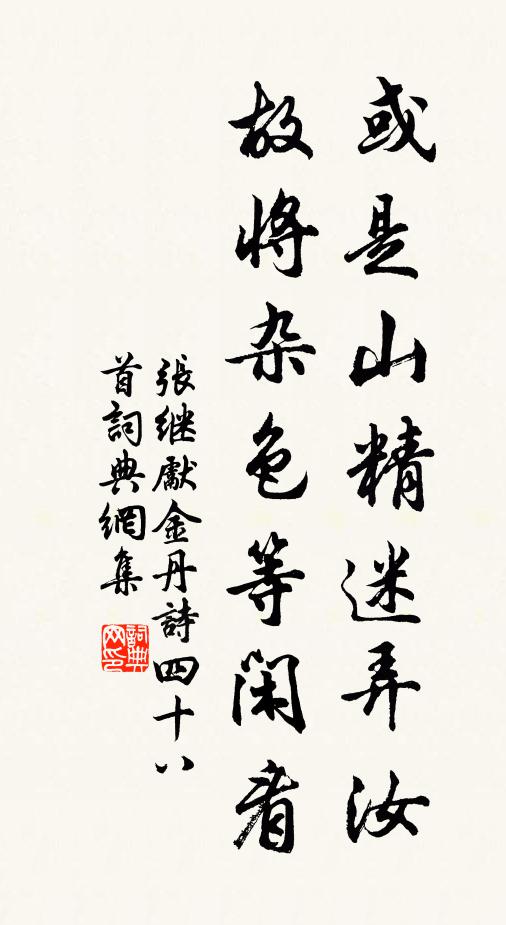 或是山精迷弄汝
故将杂色等闲看
張继獻金丹詩四十八
首詞典網集
詞典
网印